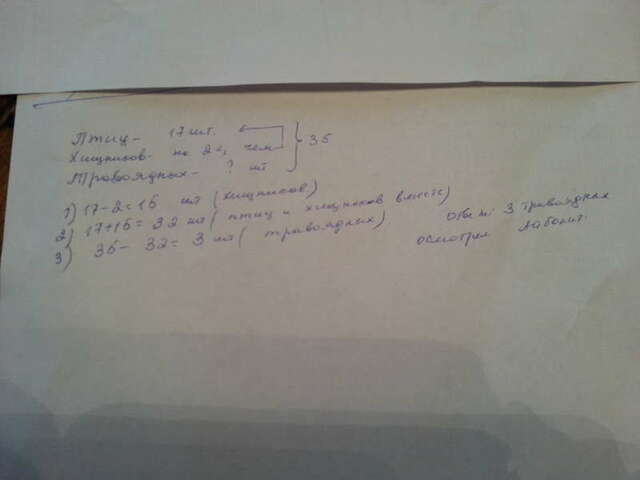 Птиц - 17 шт.
Хищников - на 2 <, чем } 35
Травоядных - ? шт
1) 17-2=15 шт (хищников)
2) 17+15=32 шт (птиц и хищников вместе)
3) 35-32=3 шт (травоядных)
Ответ: 3 травоядных
осмотрел